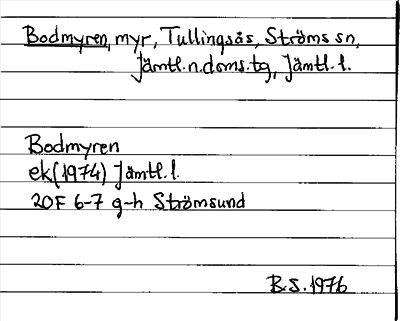 Bodmyren, myr, Tullingsås, Ströms sn,
Jämtl.n.doms.tg, Jämtl.l.
Bodmyren
ek(1974) Jämtl.l.
20F 6-7 g-h Strömsund
B.S. 1976